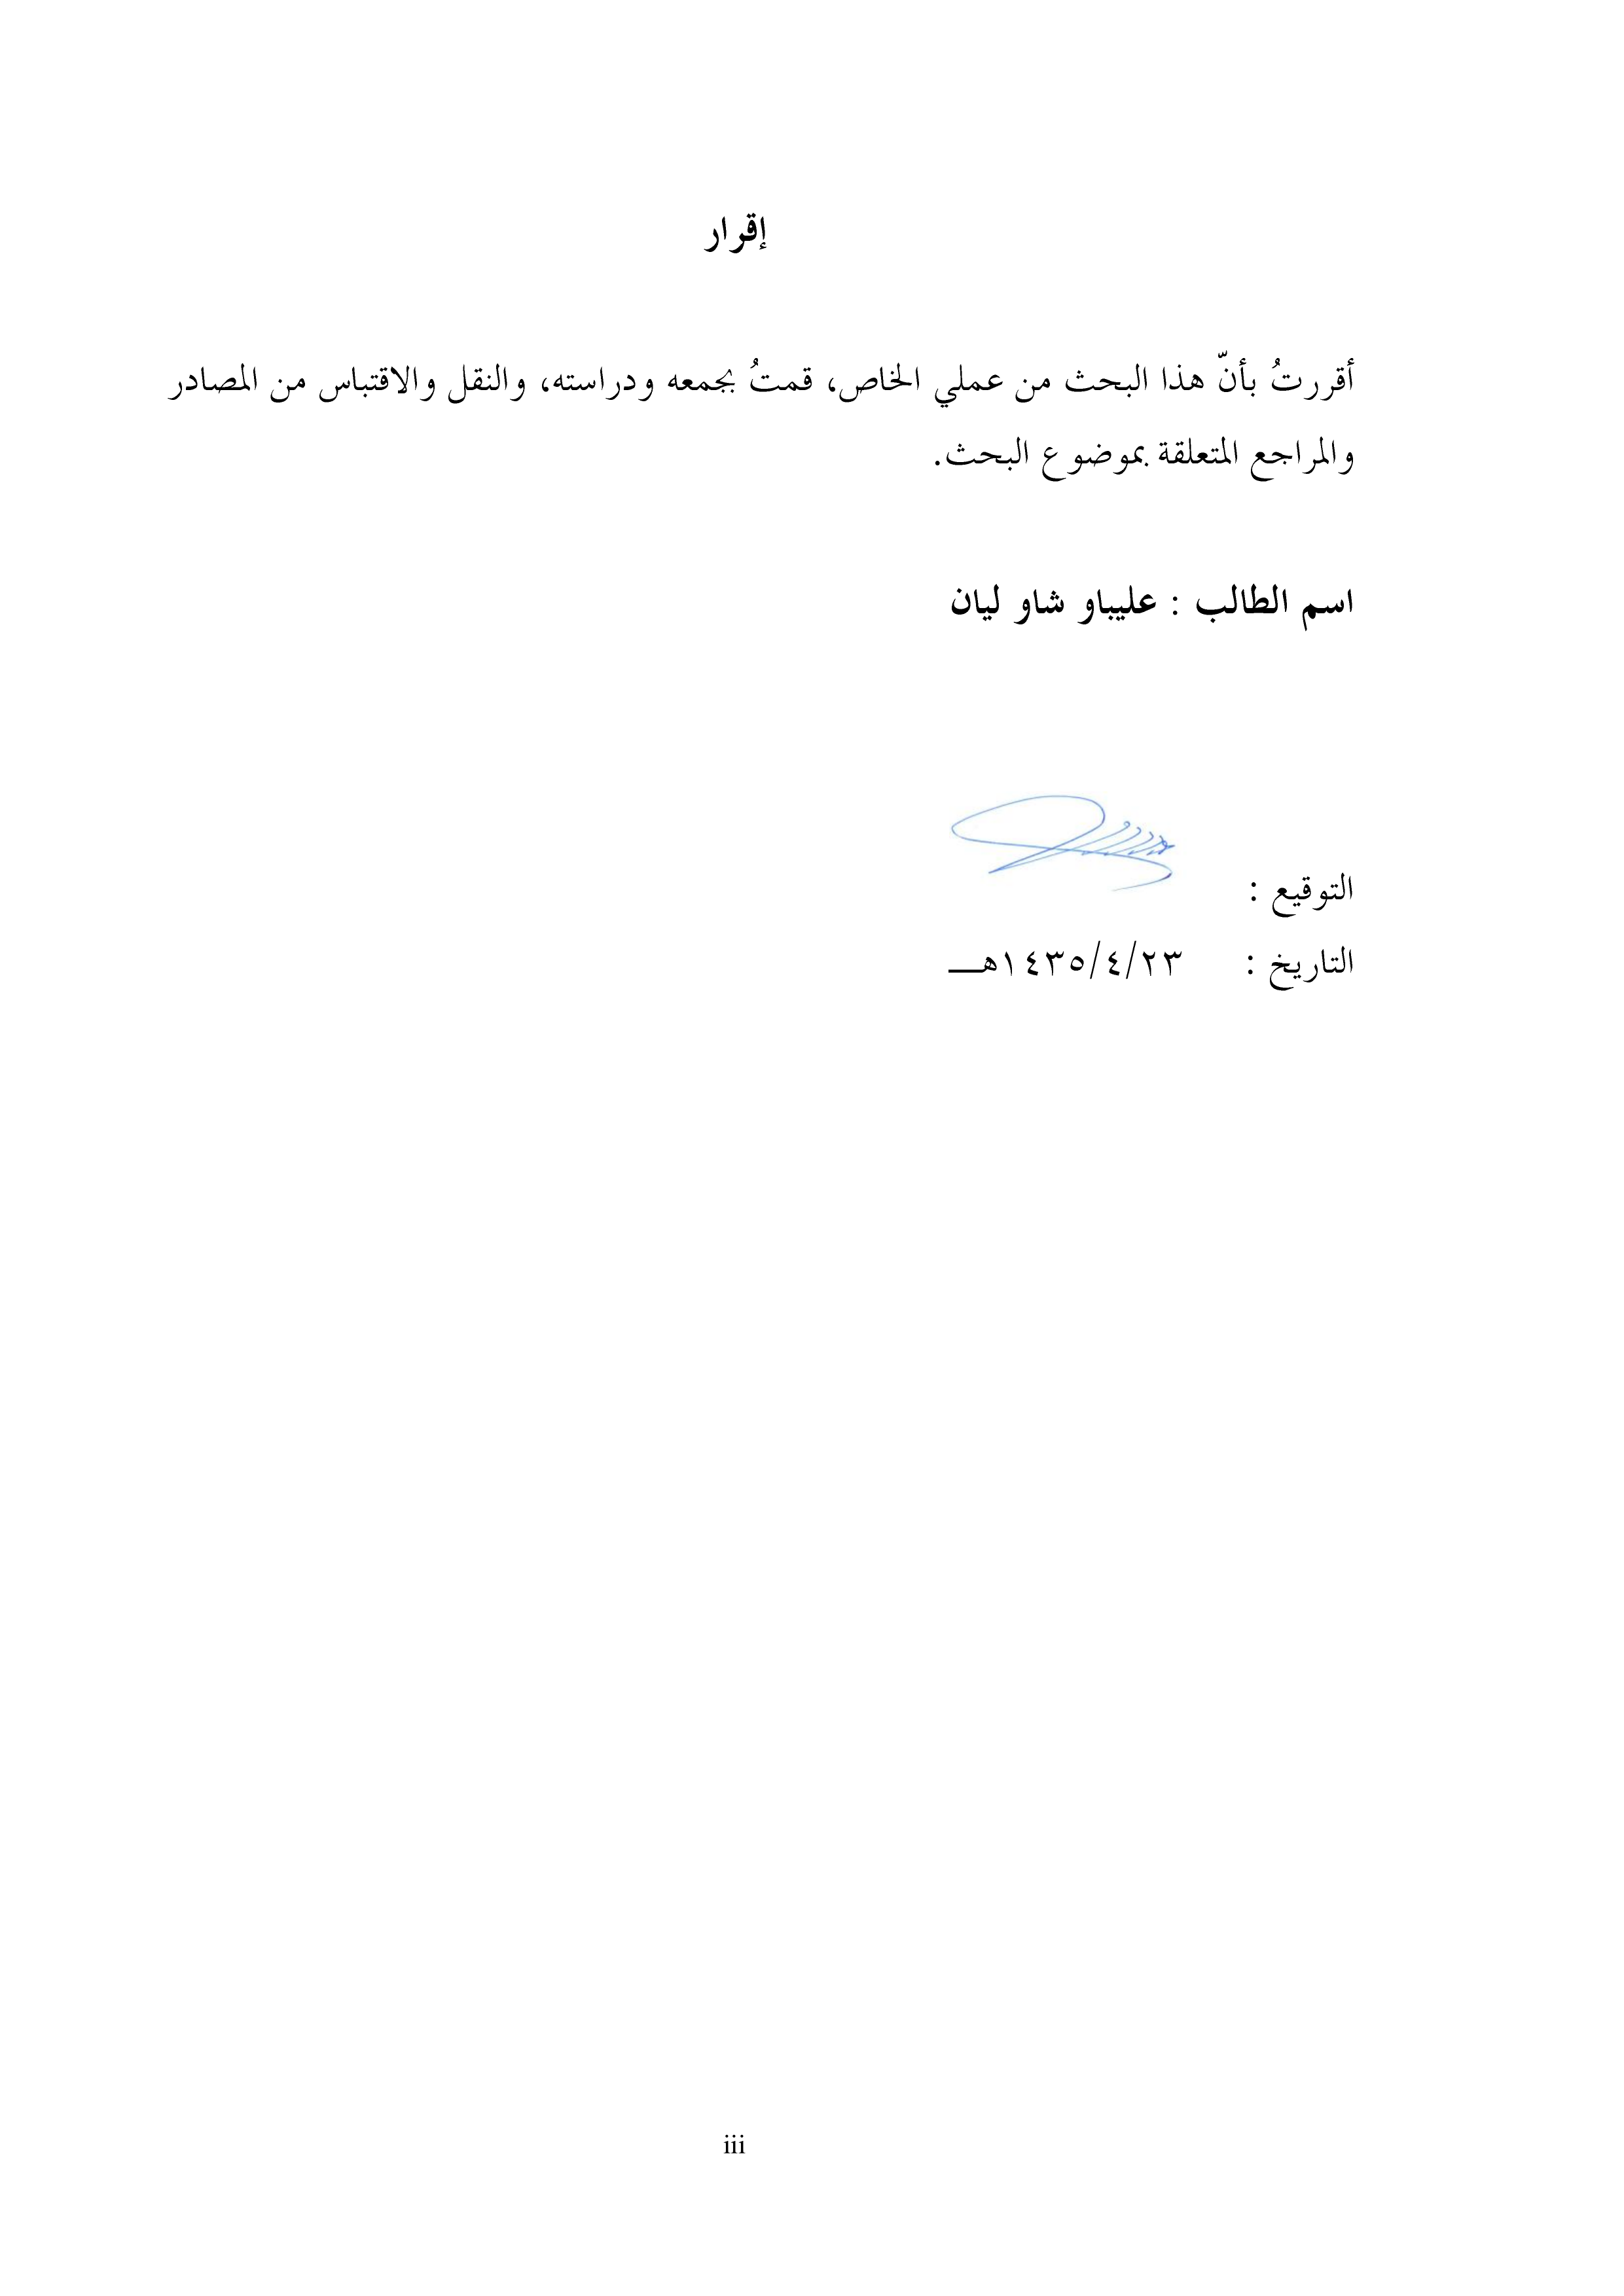 إقرار
أقررتُ بأنّ هذا البحث من عملي الخاص، قمتُ بجمعه ودراسته، والنقل والاقتباس من المصادر
والمراجع المتعلقة بموضوع البحث.
اسم الطالب : عليباو شاو ليان
التوقيع :
التاريخ : ٢٣/٤/١٤٣٥هـــ
iii